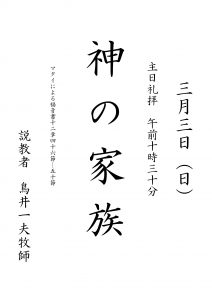 三月三日（日）
主日礼拝　午前十時三十分
神の家族
マタイによる福音書十二章四十六節―五十節
説教者　鳥井一夫牧師